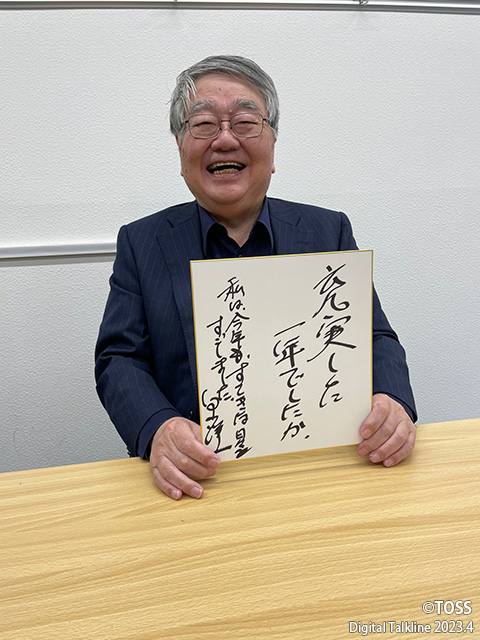 充実した
一年でしたか。
私は、今年も、すてきな日を
すごしました。向山洋一
©TOSS
Digital Talkline 2023.4